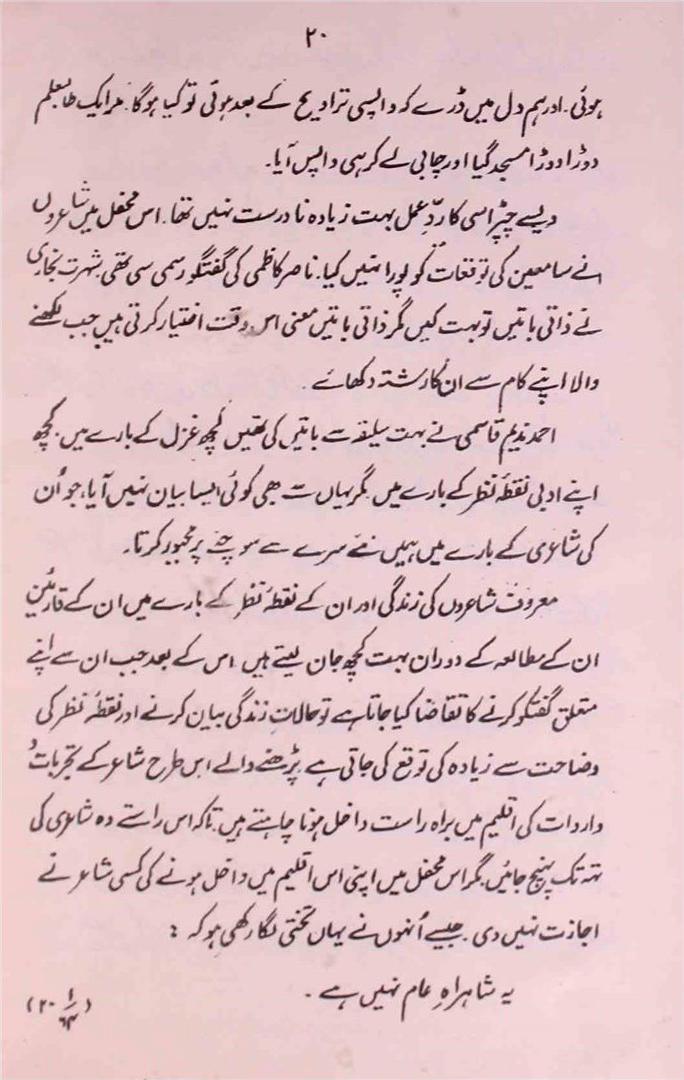 ۲۰
ہوئی۔ اور ہم دل میں ڈرے کہ واپسی تراویح کے بعد ہوئی تو کیا ہوگا۔ مگر ایک طالبعلم
دوڑا دوڑا مسجد گیا اور چابی لے کر ہی واپس آیا۔
ویسے چپڑاسی کا ردِّ عمل بہت زیادہ نادرست نہیں تھا۔ اس محفل میں شاعروں
نے سامعین کی توقعات کو پورا نہیں کیا۔ ناصر کاظمی کی گفتگو رسمی سی تھی۔ شہرت بخاری
نے ذاتی باتیں تو بہت کیں مگر ذاتی باتیں معنی اس وقت اختیار کرتی ہیں جب لکھنے
والا اپنے کام سے ان کا رشتہ دکھائے۔
احمد ندیم قاسمی نے بہت سلیقہ سے باتیں کی تھیں کچھ غزل کے بارے میں۔ کچھ
اپنے ادبی نقطۂ نظر کے بارے میں۔ مگر یہاں بھی کوئی ایسا بیان نہیں آیا، جو اُن
کی شاعری کے بارے میں ہمیں نئے سرے سے سوچنے پر مجبور کرتا۔
معروف شاعروں کی زندگی اور ان کے نقطۂ نظر کے بارے میں ان کے قارئین
ان کے مطالعہ کے دوران بہت کچھ جان لیتے ہیں۔ اس کے بعد جب ان سے اپنے
متعلق گفتگو کرنے کا تقاضا کیا جاتا ہے تو حالاتِ زندگی بیان کرنے اور نقطۂ نظر کی
وضاحت سے زیادہ کی توقع کی جاتی ہے۔ پڑھنے والے اس طرح شاعر کے تجربات و
واردات کی اقلیم میں براہ راست داخل ہونا چاہتے ہیں۔ تاکہ اس راستے وہ شاعری کی
تہہ تک پہنچ جائیں۔ مگر اس محفل میں اپنی اس اقلیم میں داخل ہونے کی کسی شاعر نے
اجازت نہیں دی۔ جیسے اُنہوں نے یہاں تختی لگا رکھی ہو کہ :
یہ شاہراہِ عام نہیں ہے۔
(۲۰ ۱/۶۴)